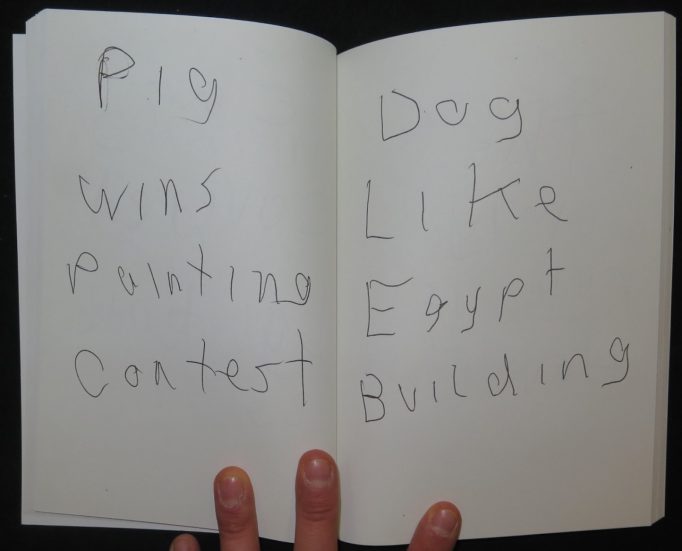 Pig
wins
Painting
Contest
Dog
Like
Egypt
Building